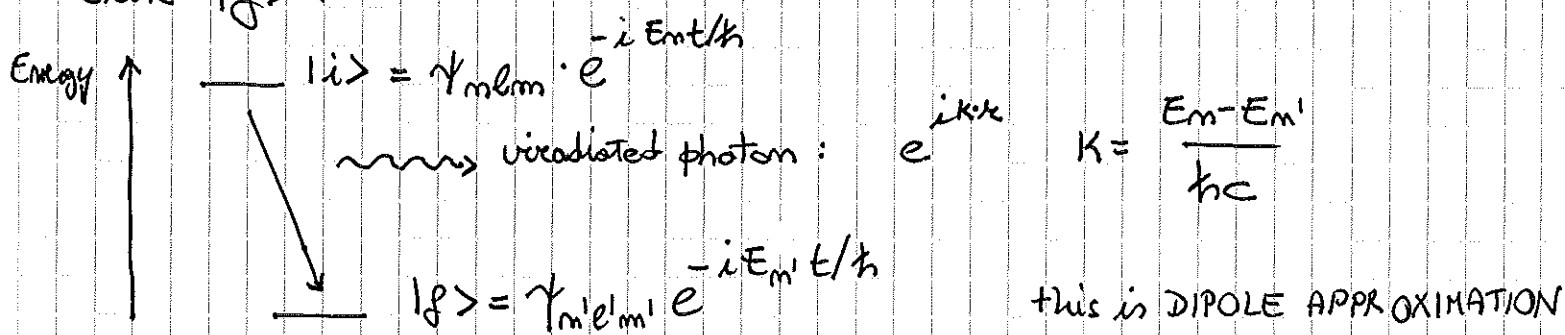 Energy |i> = ψnlm · e^-iEnt/ħ
irradiated photon : e^ik·r K = En-En' / ħc
|f> = ψn'l'm' e^-iEn't/ħ this is DIPOLE APPROXIMATION